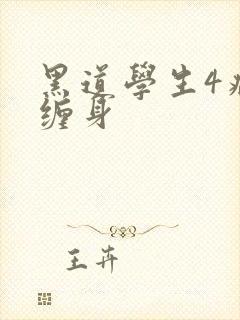 黑道學生4
缠身
王卉